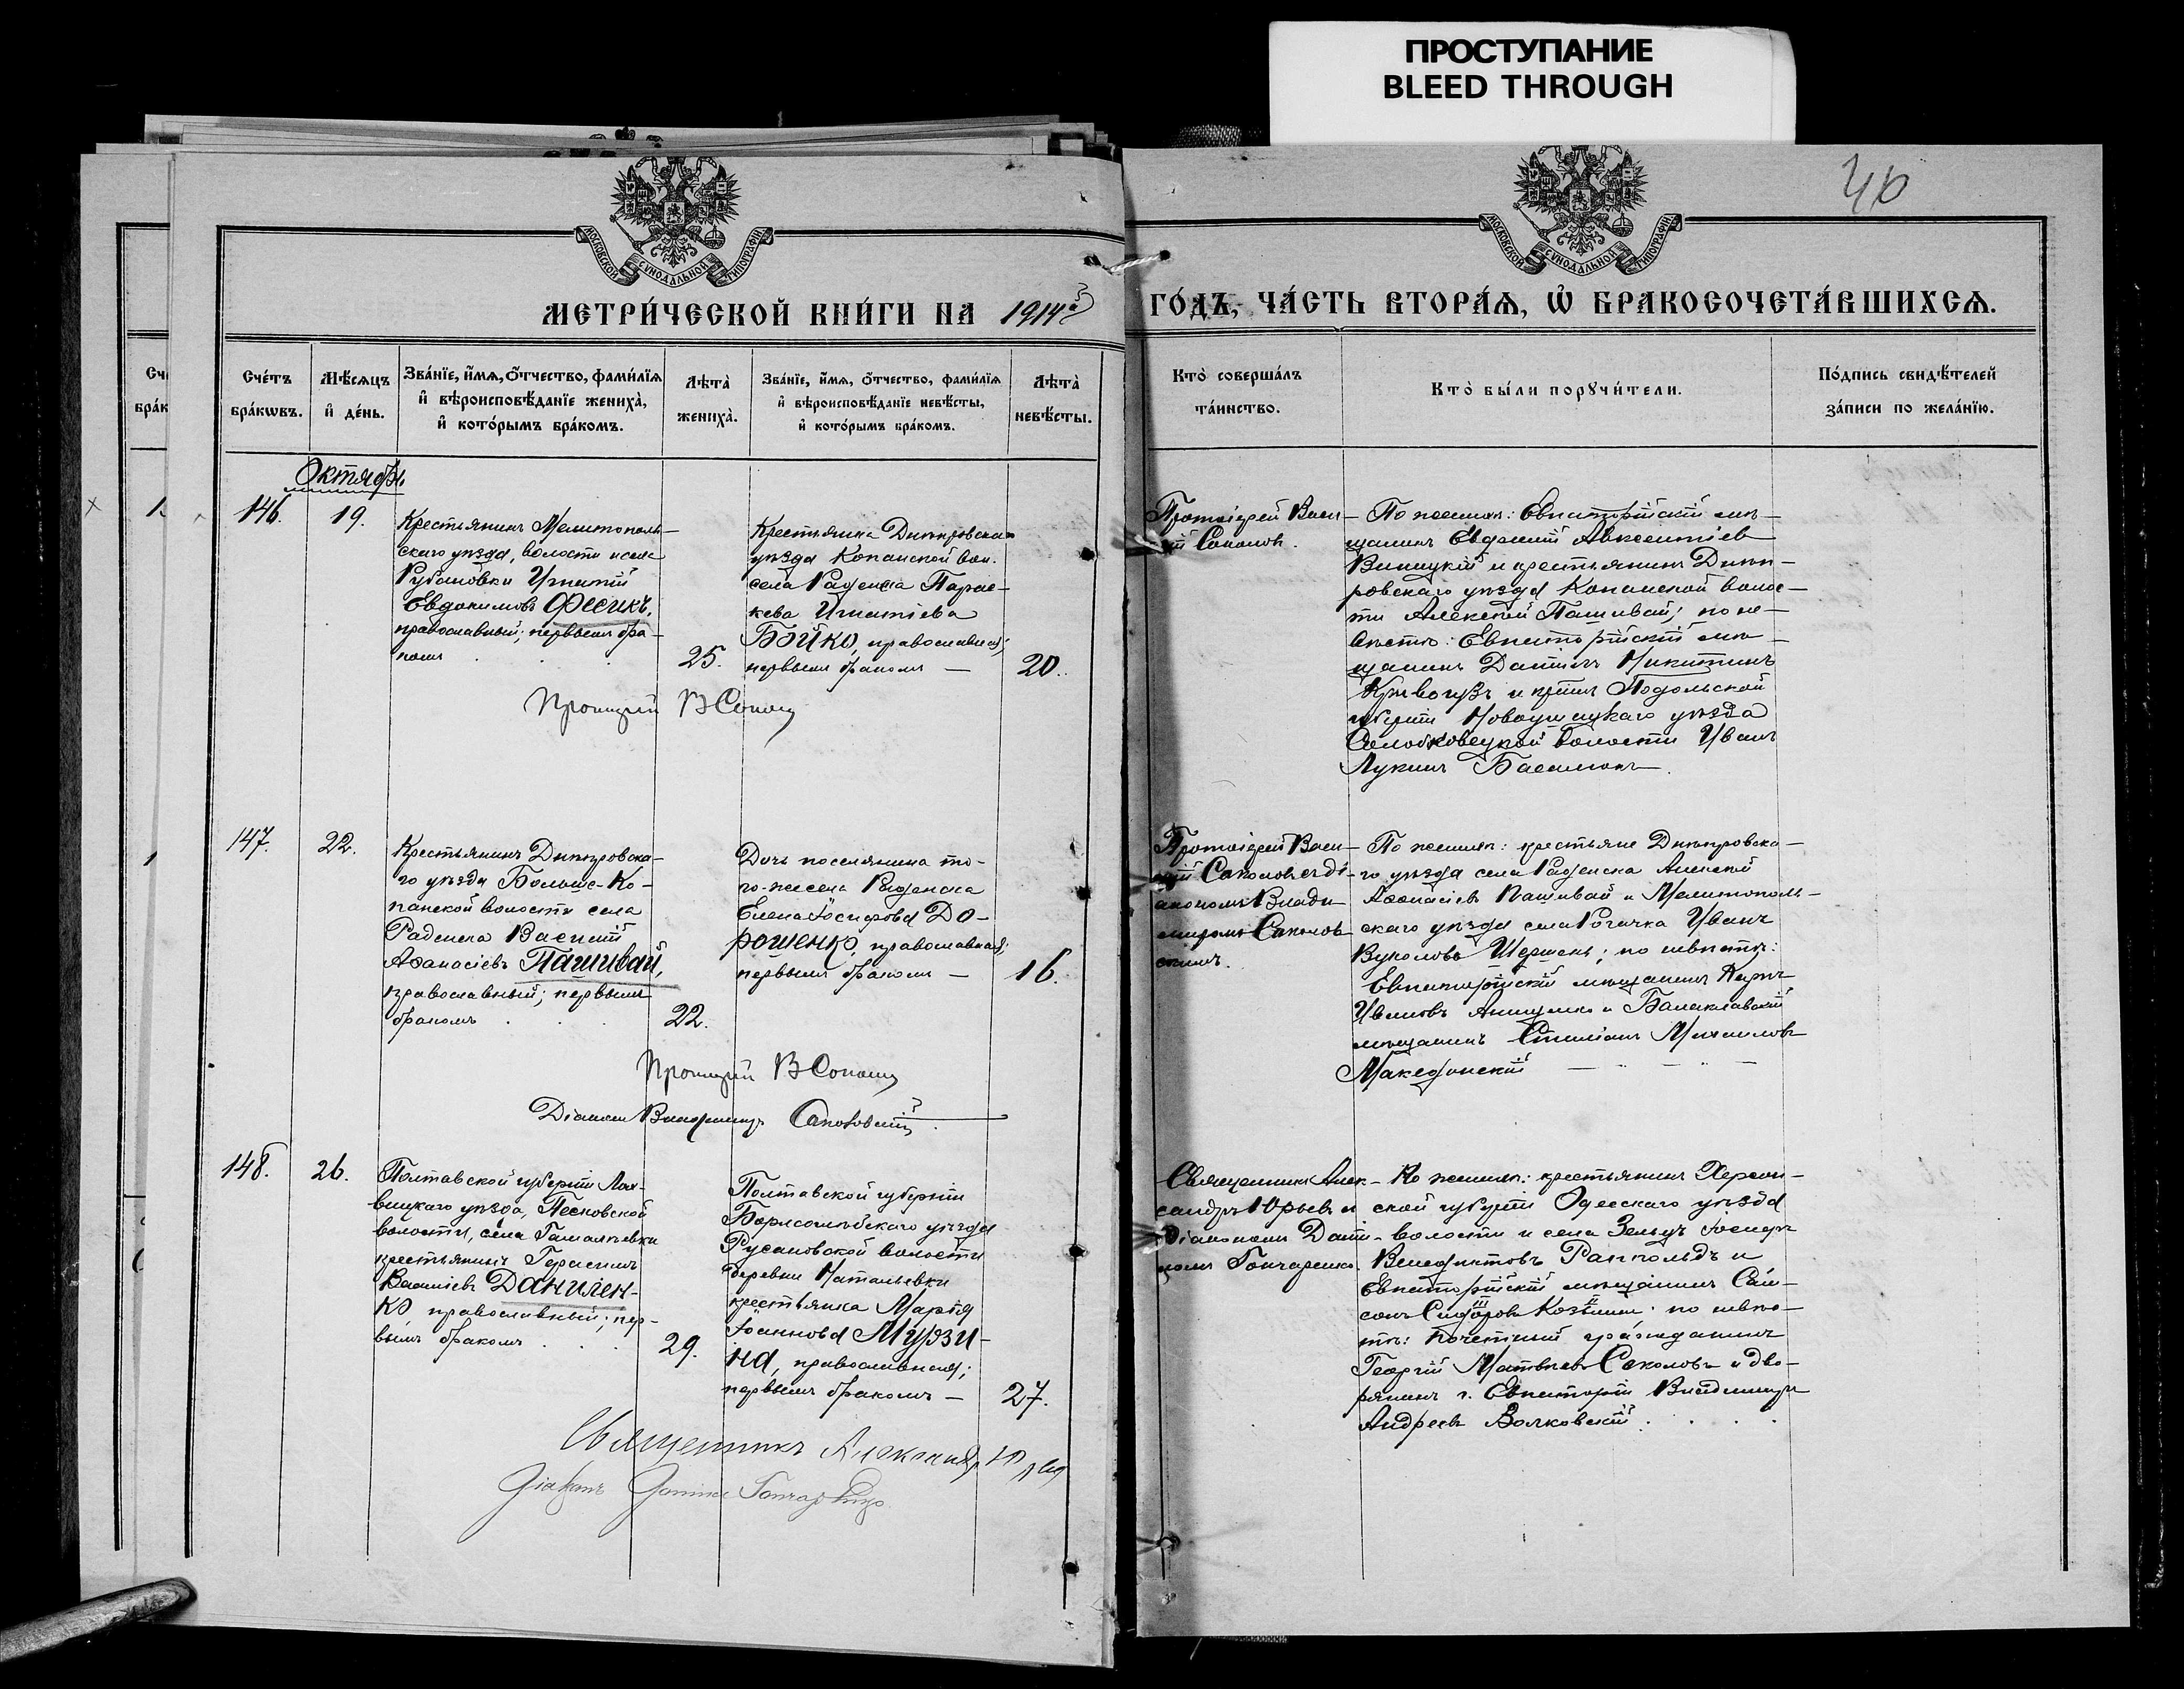 ПРОСТУПАНИЕ
BLEED THROUGH
46
МОСКОВСКОЙ СѴНОДАЛЬНОЙ ТИПОГРАФІИ
МОСКОВСКОЙ СѴНОДАЛЬНОЙ ТИПОГРАФІИ
МЕТРИ́ЧЕСКОЙ КНИ́ГИ НА 1914й
ГО́ДЪ, ЧА́СТЬ ВТОРА́Я, Ѡ БРАКОСОЧЕТА́ВШИХСЯ.
Сче́тъ
бра́кѡвъ.
Мѣ́сяцъ
и де́нь.
Зва́нїе, и́мя, о́тчество, фами́лїя
и вѣроисповѣ́данїе жениха̀,
и кото́рымъ бра́комъ.
Лѣта̀
жениха̀.
Зва́нїе, и́мя, о́тчество, фами́лїя
и вѣроисповѣ́данїе невѣ́сты,
и кото́рымъ бра́комъ.
Лѣта̀
невѣ́сты.
Кто̀ соверша́лъ
та́инство.
Кто̀ бы́ли порꙋчи́тели.
По́дпись свидѣ́телей
за́писи по жела́нїю.
Октябрь
146.
19.
Крестьянинъ Мелитополь-
скаго уѣзда, волости и села
Рубановки Игнатій
Евдокимовъ Фесикъ,
православный; первымъ бра-
комъ
25.
Крестьянка Днѣпровскаго
уѣзда Копанской вол.
села Раденска Парас-
кева Игнатіева
Бойко, православная;
первымъ бракомъ —
20.
Протоіерей Васи-
лій Соколовъ.
По женихѣ: Евпаторійскій мѣ-
щанинъ Евдокий Авксентіевъ
Виницкій и крестьянинъ Днѣп-
ровскаго уѣзда Копанской волос-
ти Алексѣй Пашивай; по не-
вѣстѣ: Евпаторійскій мѣ-
щанинъ Даніилъ Никитинъ
и крест. Подольской
губерніи Новоушицкаго уѣзда
Солобковецкой волости Иванъ
Лукинъ
Протоіерей В Соколов
147.
22.
Крестьянинъ Днѣпровска-
го уѣзда Больше-Ко-
панской волости села
Раденска Василій
Аѳанасіевъ Пашивай,
православный; первымъ
бракомъ
22.
Дочь поселянина то-
го-же села Раденска
Елена Іосифова До-
рошенко, православная;
первымъ бракомъ —
16.
Протоіерей Васи-
лій Соколовъ съ ді-
акономъ Влади-
миромъ
По женихѣ: крестьяне Днѣпровска-
го уѣзда села Раденска Алексѣй
Аѳанасіевъ Пашивай и Мелитополь-
скаго уѣзда села Рогачка Иванъ
Вуколовъ Шершень; по невѣстѣ:
Евпаторійскій мѣщанинъ Карпъ
Ивановъ и Балаклавскій
мѣщанинъ Стиліанъ Михаиловъ
Македонскій
Протоіерей В Соколов
Діаконъ Владиміръ
148.
26.
Полтавской губерніи Лох-
вицкаго уѣзда, Песковской
волости, села Гамалѣевки
крестьянинъ Герасимъ
Василіевъ Данилен-
ко, православный; пер-
вымъ бракомъ
29.
Полтавской губерніи
Борисоглѣбскаго уѣзда
Русановской волости
деревни Натальевки
крестьянка Марія
Іоаннова Мурзи-
на, православная;
первымъ бракомъ —
27.
Священникъ Алек-
сандръ Юрьевъ съ
діакономъ Дани-
ломъ Гончаренко.
По женихѣ: крестьянинъ Херсон-
ской губерніи Одесскаго уѣзда
волости и села Зельцъ Іосифъ
Венедиктовъ Раппольдъ и
Евпаторійскій мѣщанинъ Сам-
сонъ Сидоровъ Козминъ; по невѣс-
тѣ: почетный гражданинъ
Георгій Матвѣевъ Соколовъ и дво-
рянинъ г. Евпаторіи Владиміръ
Андреевъ Волковскій.
Священникъ Александръ Юрьев
Діаконъ Даниилъ Гончаренко